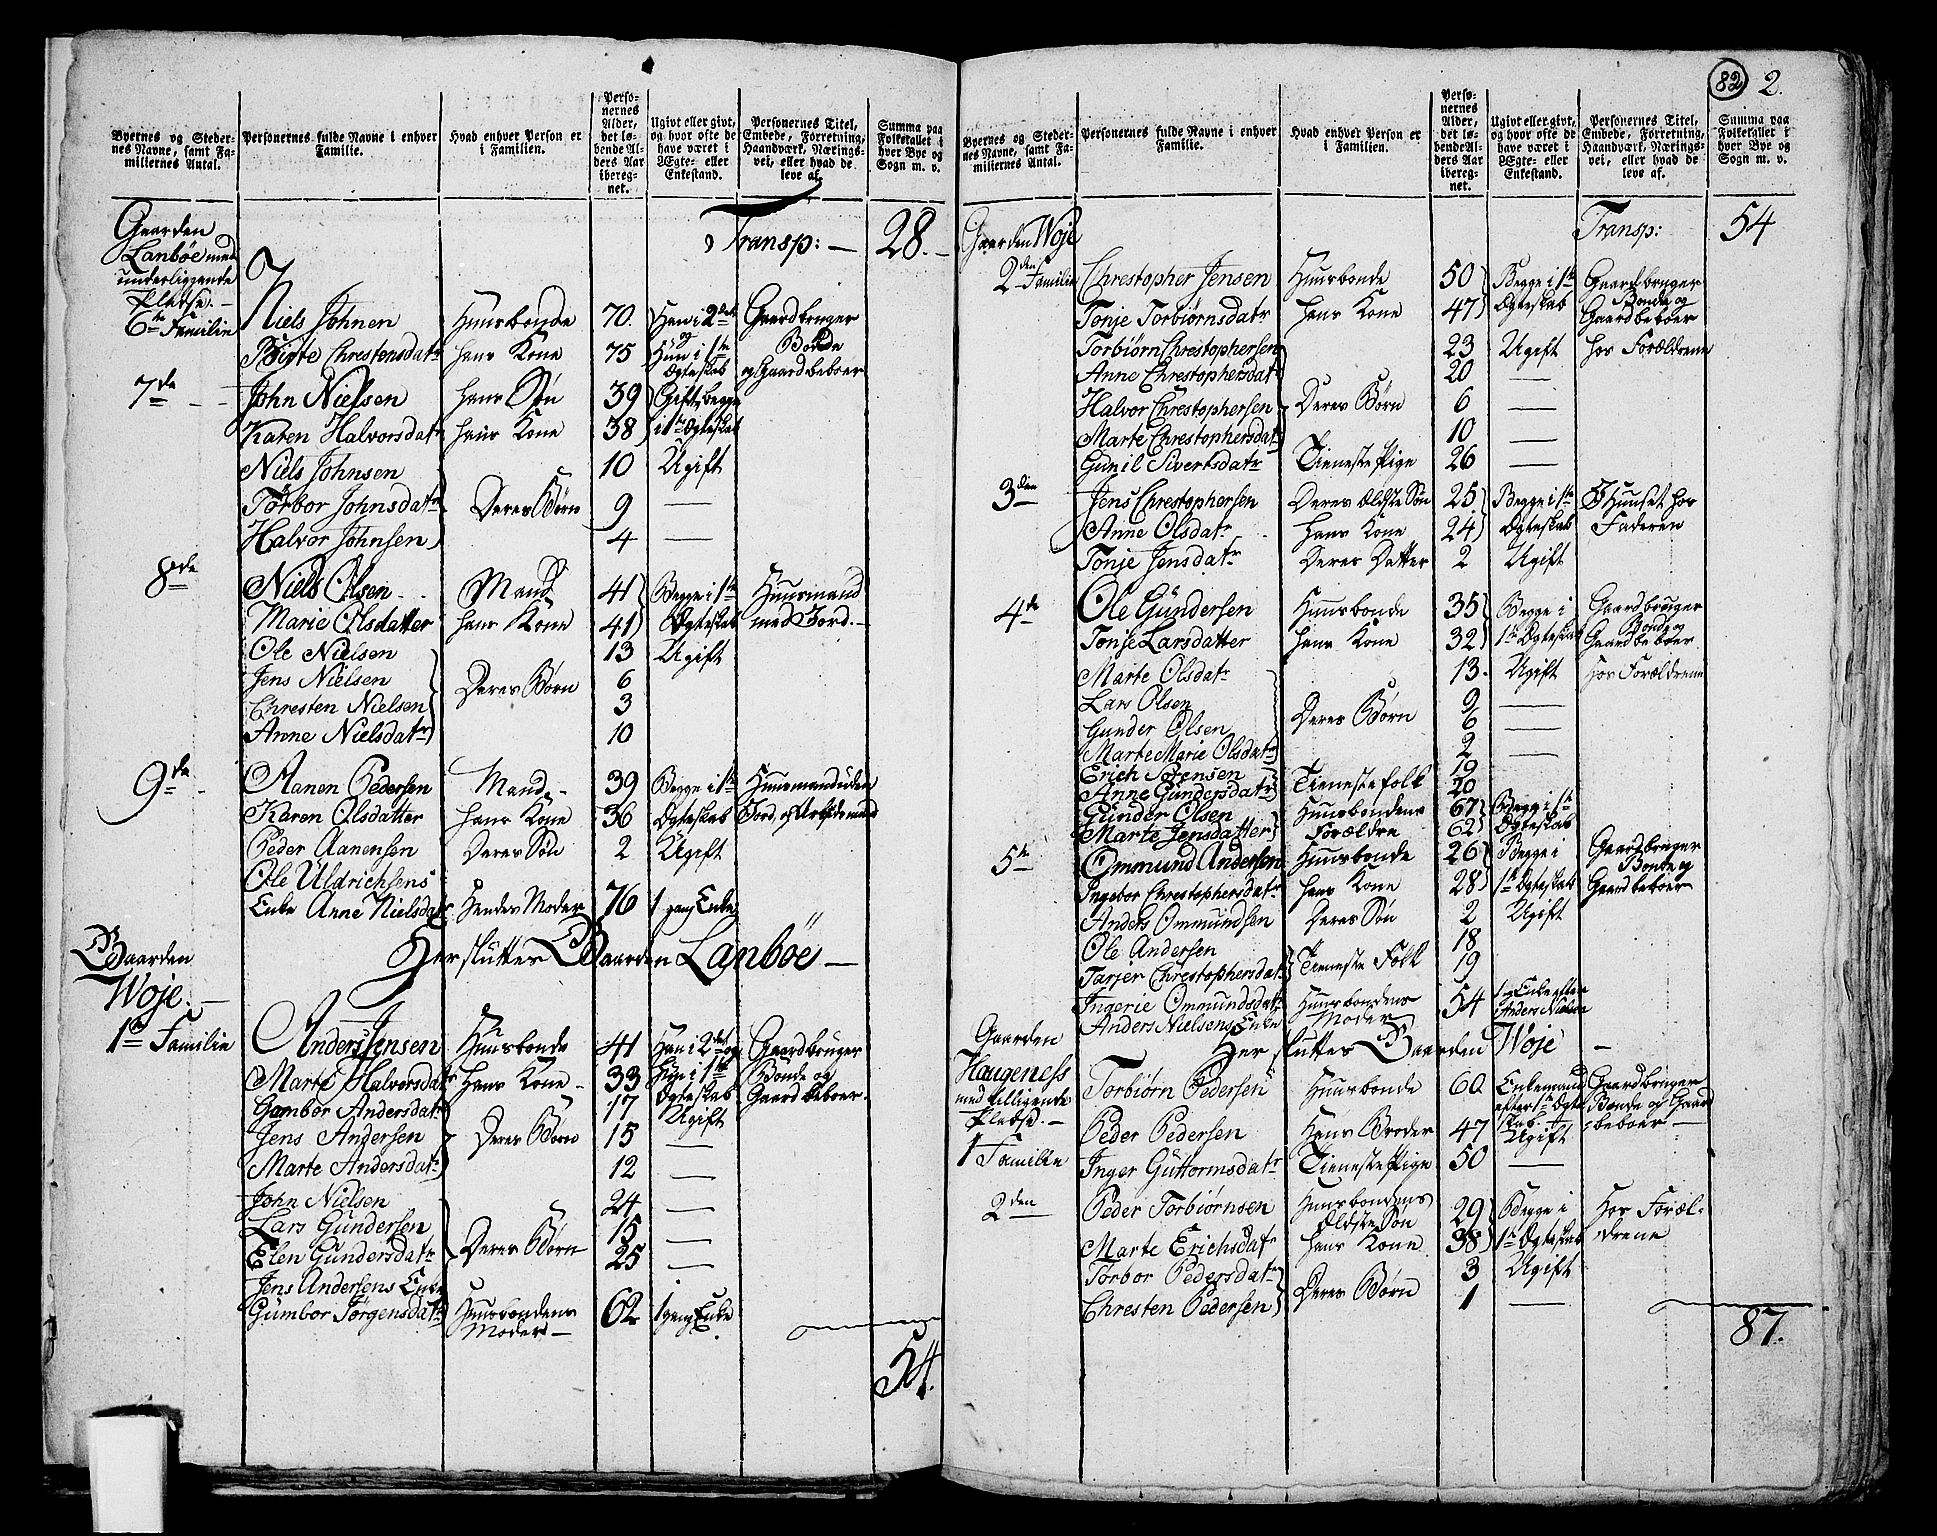 Byernes og Steder- nes Navne, samt Fa- miliernes Antal.
Personernes fulde Navne i enhver Familie.
Hvad enhver Person er i Familien.
Perso- nernes Alder, det lø- bende Al- ders Aar ibereg- net.
Ugivt eller givt, og hvor ofte de have været i Ægte- eller Enkestand.
Personernes Titel, Embede, Forretning, Haandværk, Nærings- vei, eller hvad de leve af.
Summa paa Folketallet i hver Bye og Sogn m. v.
Gaarden Transp: — 28. —
Lanbøe med
underliggende
Pladse. —
6te Familie Niels Johnen Huusbonde 70. Han i 2det Gaardbruger
Birte Chrestensdatr hans Kone 75 og Hun i 1te Ægteskab Bonde og Gaardbeboer
7de John Nielsen hans Søn 39 Gift, begge
Karen Halvorsdatr hans Kone 38 i 1te Ægteskab
Niels Johnsen 10 Ugift
Torbor Johnsdatr Deres Børn 9 —
Halvor Johnsen 4 —
8de Niels Olsen Mand 41 Begge i 1te Huusmand
Marie Olsdatter hans Kone 41 Ægteskab med Jord. —
Ole Nielsen 13 Ugift
Jens Nielsen 6
Chresten Nielsen Deres Børn 3
Anne Nielsdatr 10
9de Aanen Pedersen Mand 39 Begge i 1te Huusmand uden
Karen Olsdatter hans Kone 36 Ægteskab Jord, og Arbeidsmand
Peder Aanensen Deres Søn 2 Ugift
Ole Uldrichsens
Enke Anne Nielsdatr Hendes Moder 76 1 gang Enke
Gaarden Her slutter Gaarden Lanbøe —
Woje. —
1te Familie Anders Jensen Huusbonde 41 Han i 2det og Gaardbruger
Marte Halvorsdatr Hans Kone 33 Hun i 1te Bonde og
Gambor Andersdatr 17 Ægteskab Ugift Gaardbeboer.
Jens Andersen Deres Børn 15 —
Marte Andersdatr 12 —
John Nielsen 24 —
Lars Gundersen 15 —
Elen Gundersdatr Deres Børn 25 —
Jens Andersens Enke
Gumbor Jørgensdatr Huusbondens Moder — 62 1 gang Enke
54.
82 2.
Byernes og Steder- nes Navne, samt Fa- miliernes Antal.
Personernes fulde Navne i enhver Familie.
Hvad enhver Person er i Familien.
Perso- nernes Alder, det lø- bende Al- ders Aar ibereg- net.
Ugivt eller givt, og hvor ofte de have været i Ægte- eller Enkestand.
Personernes Titel, Embede, Forretning, Haandværk, Nærings- vei, eller hvad de leve af.
Summa paa Folketallet i hver Bye og Sogn m. v.
Gaarden Woje Transp: 54
2den Familie Chrestopher Jensen Huusbonde 50 Begge i 1te Gaardbruger
Tonje Torbiørnsdatr hans Kone 47 Ægteskab Bonde og Gaardbeboer
Torbiørn Chrestophersen 23 Ugift hos Forældrene
Anne Chrestophersdatr 20 —
Halvor Chrestophersen Deres Børn 6 —
Marte Chrestophersdatr 10 —
Gunil Sivertsdatr Tieneste Pige 26 —
3die Jens Chrestophersen Deres Ældste Søn 25 Begge i 1te I Huuset hos
Anne Olsdatr Hans Kone 24 Ægteskab Faderen
Tonje Jensdatr Deres Datter 2 Ugift
4de Ole Gundersen Huusbonde 35 Begge i Gaardbruger
Tonje Larsdatter hans Kone 32 1te Ægteskab Bonde og Gaardbeboer
Marte Olsdatr 13. Ugift hos Forældrene
Lars Olsen 9 —
Gunder Olsen Deres Børn 6 —
Marte Marie Olsdatr 2 —
Erich Sørensen 19
Anne Gundersdatr Tienestefolk 20
Gunder Olsen Huusbondens 67 Begge i 1te
Marte Jensdatter Forældre 62 Ægteskab
5te Ommund Andersen Huusbonde 26 Begge i Gaardbruger
Ingebor Chrestophersdatr hans Kone 28 1te Ægteskab Bonde og Gaardbeboer
Anders Ommundsen Deres Søn 2 Ugift
Ole Andersen 18
Tarjer Chrestophersdatr Tieneste Folk 19
Ingerie Ommundsdatr Huusbondens 54 1 g Enke efter
Anders Nielsens Enke Moder Anders Nielsen
Gaarden Her slutter Gaarden Woje —
Haugeness Torbiørn Pedersen Huusbonde 60 Enkemand Gaardbruger
med tilligende efter 1te Ægte- Bonde og Gaard-
Pladse. — Peder Pedersen Hans Broder 47 skab. Ugift beboer —
1 Familie Inger Guttormsdatr Tieneste Pige 50 —
2den Peder Torbiørnsen Huusbondens Ældste Søn 29 Begge i Hos Foræl-
Marte Erichsdatr hans Kone 38 1te Ægteskab drene
Torbor Pedersdatr 3 Ugift
Chresten Pedersen Deres Børn 1 —
87.